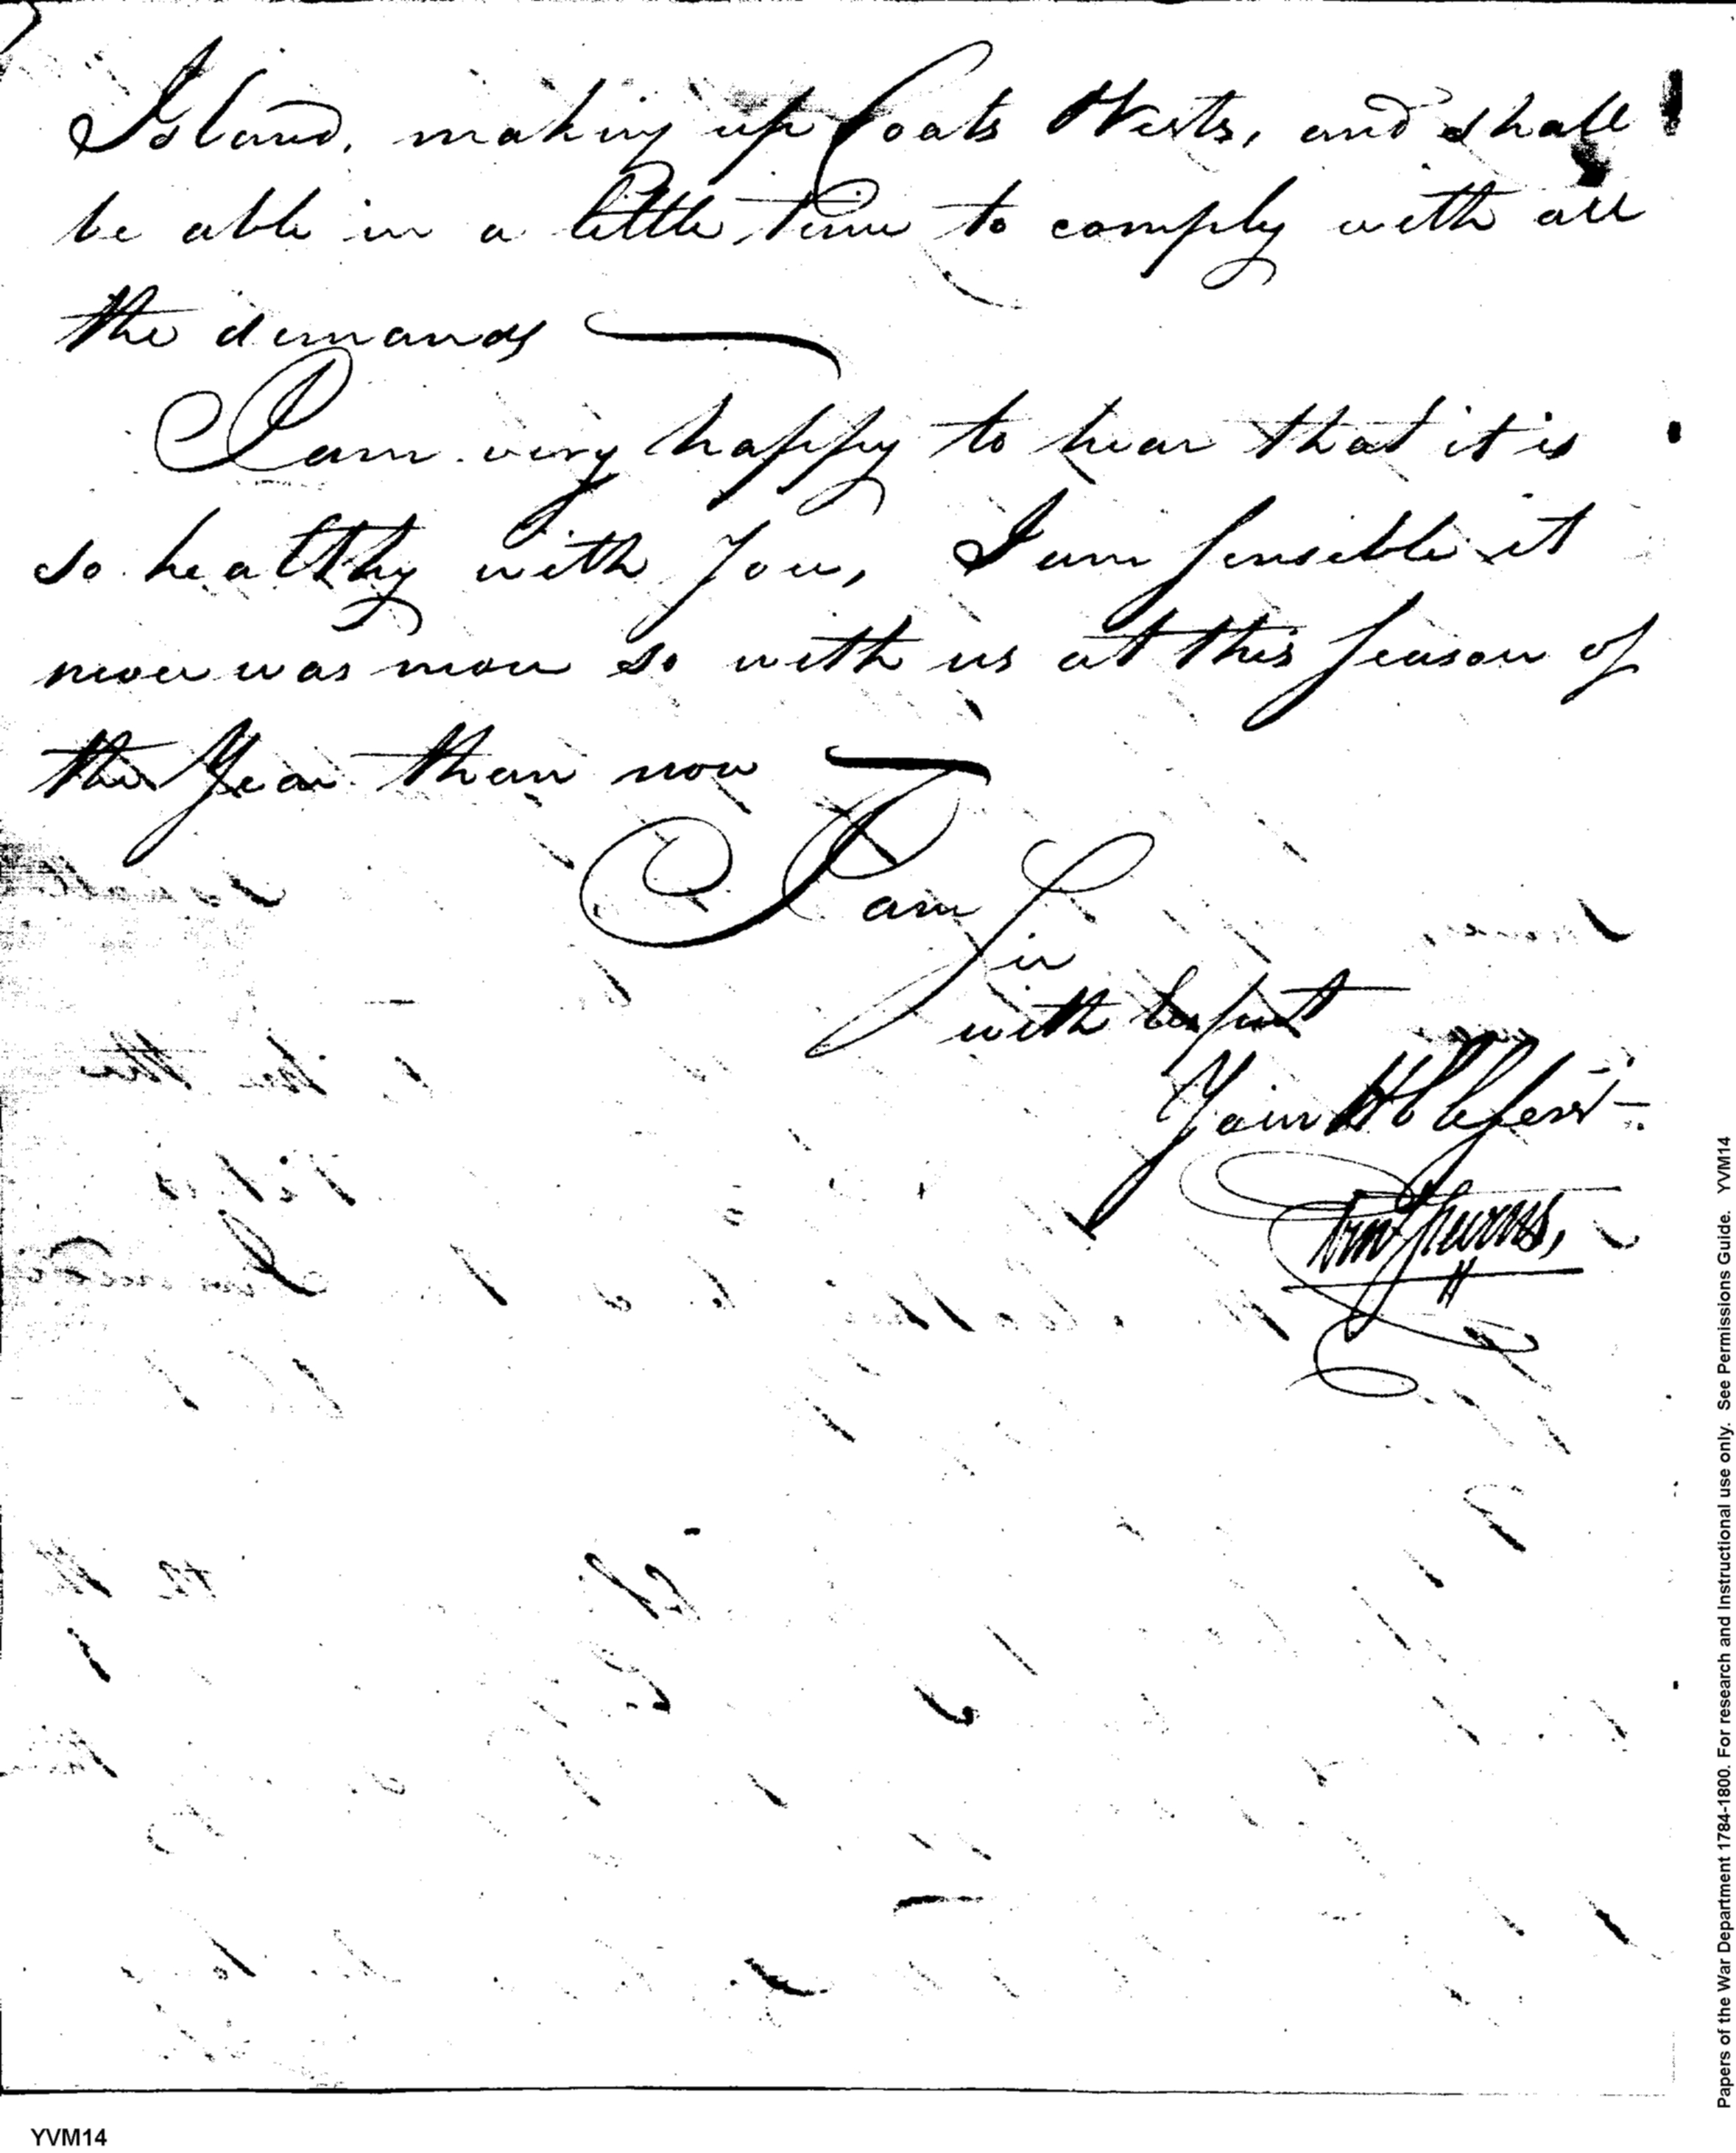 Island, making up Coats Vests, and shall
be able in a little time to comply with all
the demands
I am very happy to hear that it is
so healthy with you, I am sensible it
never was more so with us at this season of
the Year than now
I am
Sir
with respect
Your Hble serv
YVM14
Papers of the War Department 1784-1800. For research and Instructional use only. See Permissions Guide. YVM14